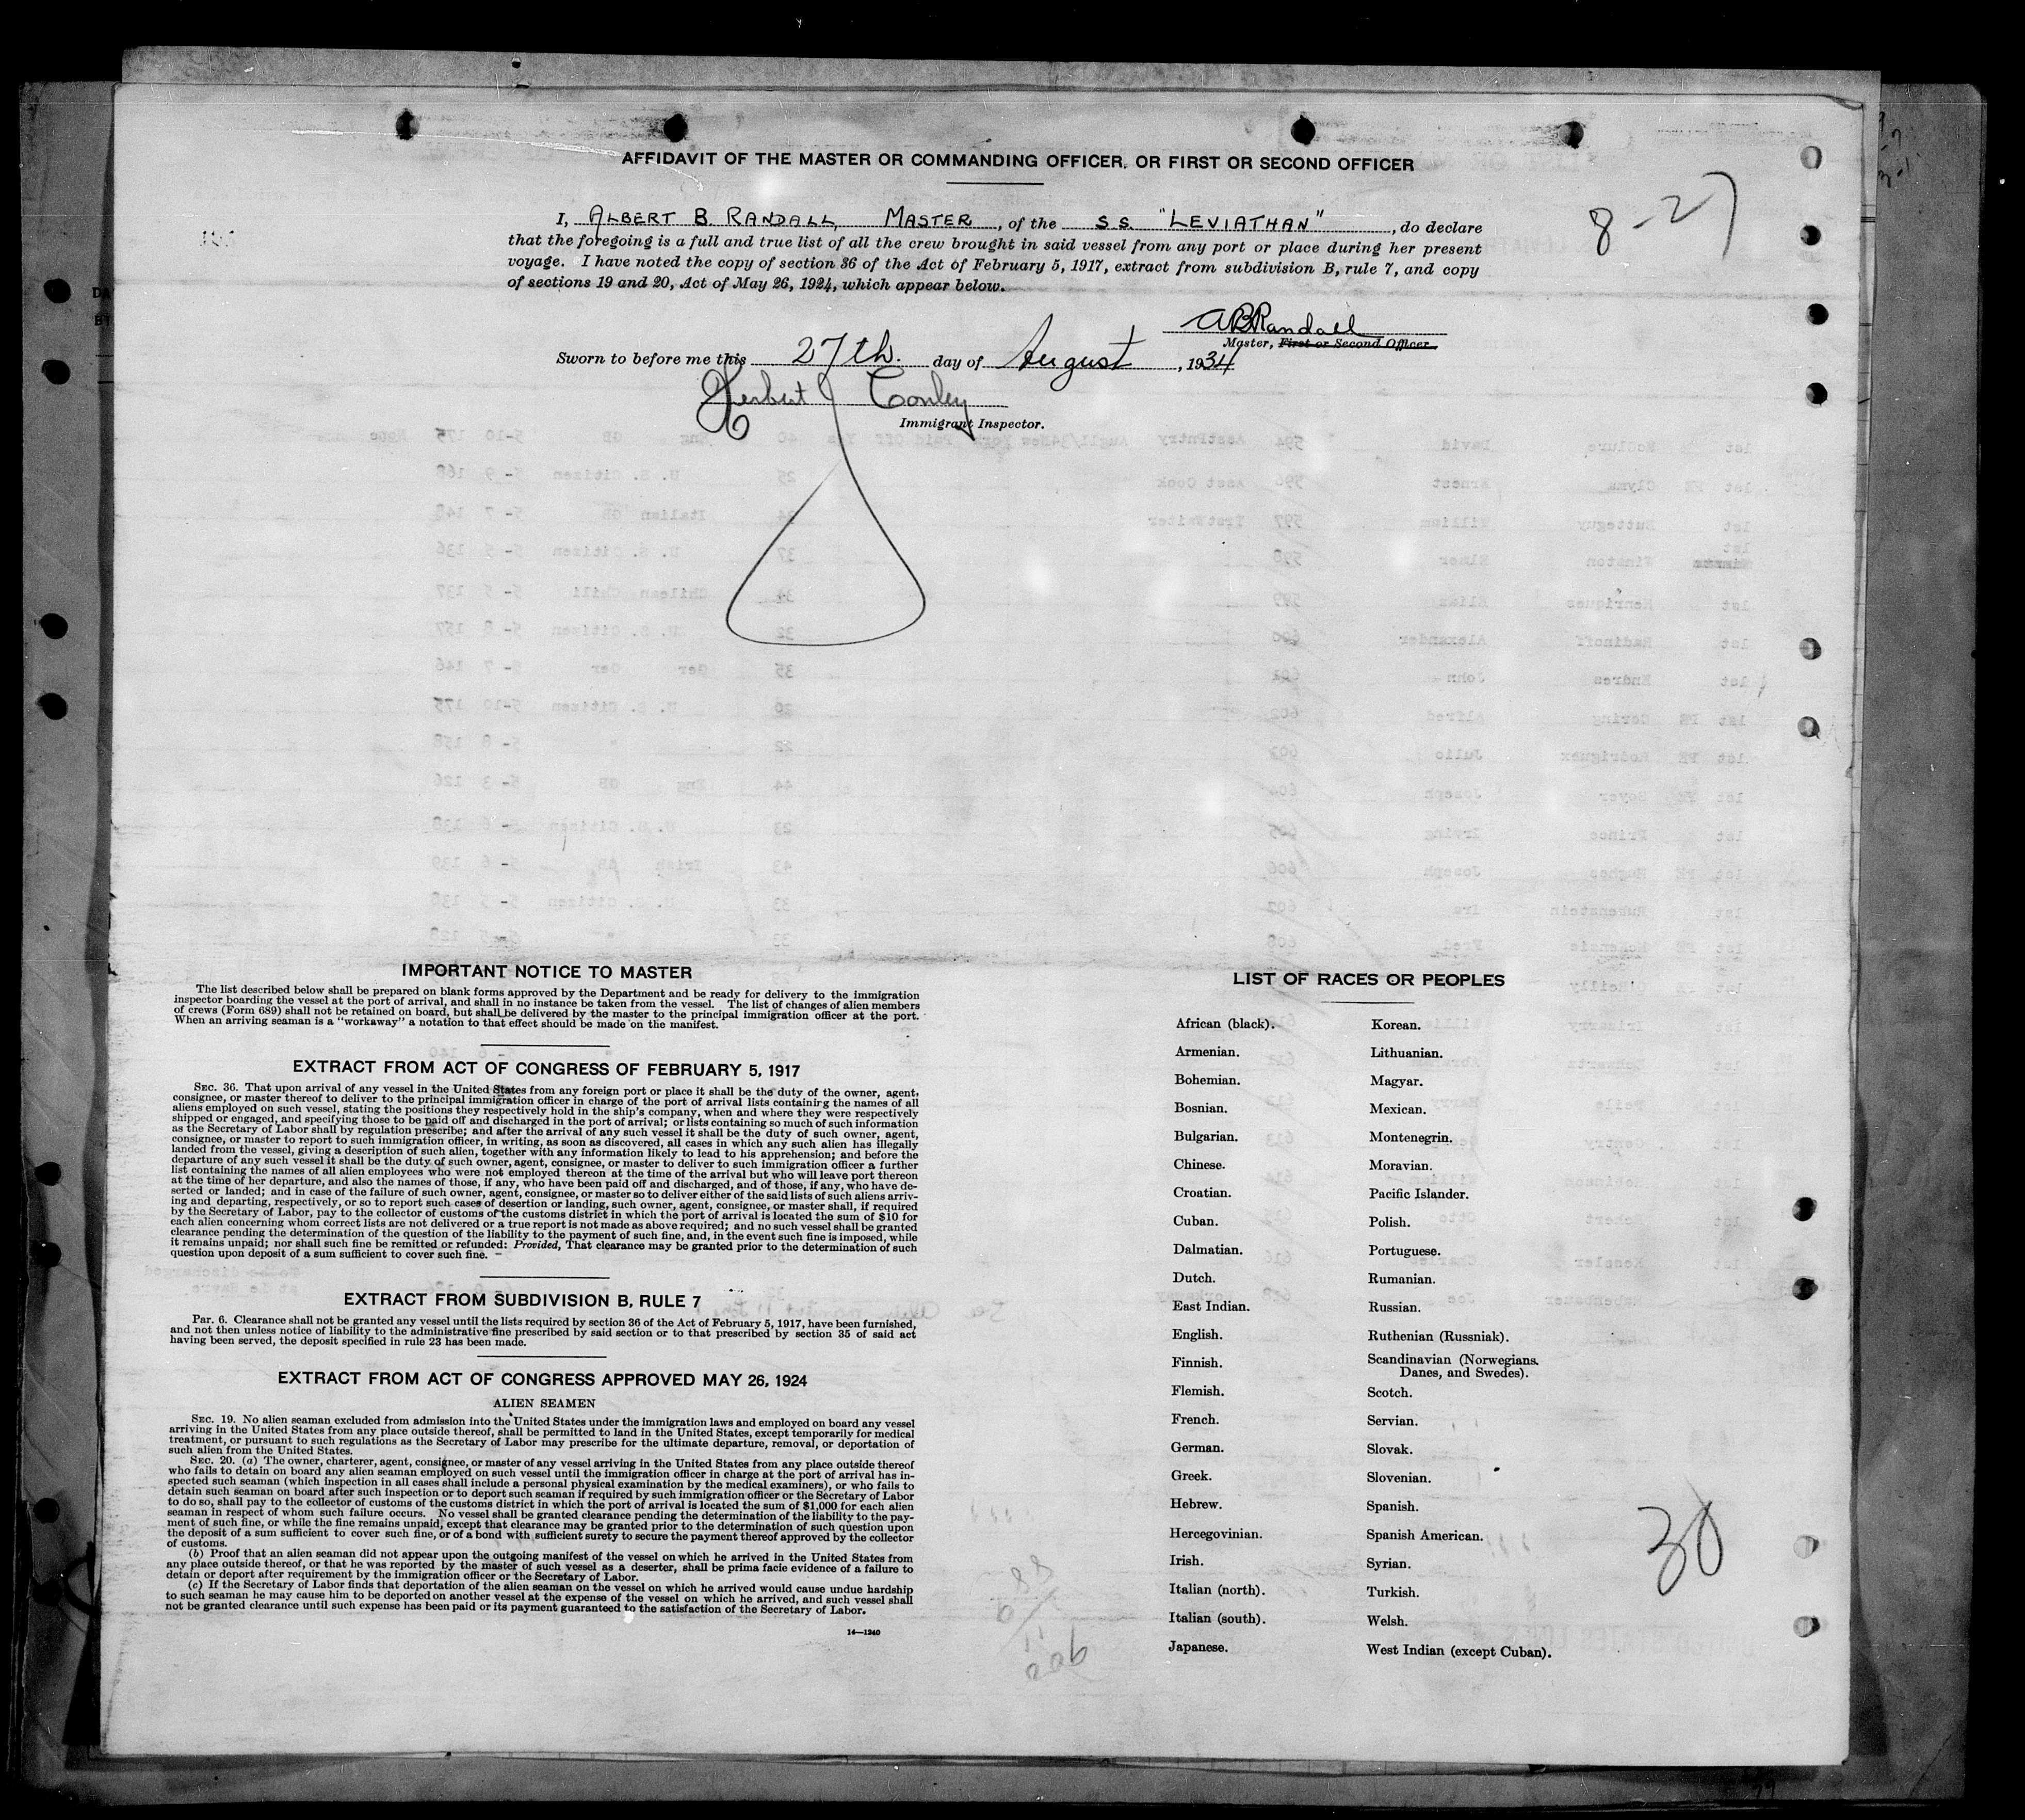 AFFIDAVIT OF THE MASTER OR COMMANDING OFFICER, OR FIRST OR SECOND OFFICER
8-27
I, ALBERT B. RANDALL, MASTER, of the S.S. "LEVIATHAN", do declare
that the foregoing is a full and true list of all the crew brought in said vessel from any port or place during her present
voyage. I have noted the copy of section 36 of the Act of February 5, 1917, extract from subdivision B, rule 7, and copy
of sections 19 and 20, Act of May 26, 1924, which appear below.
ABRandall
Master, First or Second Officer.
Sworn to before me this 27th. day of August, 1934
Herbert J Conley
Immigrant Inspector.
IMPORTANT NOTICE TO MASTER
The list described below shall be prepared on blank forms approved by the Department and be ready for delivery to the immigration
inspector boarding the vessel at the port of arrival, and shall in no instance be taken from the vessel. The list of changes of alien members
of crews (Form 689) shall not be retained on board, but shall be delivered by the master to the principal immigration officer at the port.
When an arriving seaman is a "workaway" a notation to that effect should be made on the manifest.
EXTRACT FROM ACT OF CONGRESS OF FEBRUARY 5, 1917
SEC. 36. That upon arrival of any vessel in the United States from any foreign port or place it shall be the duty of the owner, agent,
consignee, or master thereof to deliver to the principal immigration officer in charge of the port of arrival lists containing the names of all
aliens employed on such vessel, stating the positions they respectively hold in the ship's company, when and where they were respectively
shipped or engaged, and specifying those to be paid off and discharged in the port of arrival; or lists containing so much of such information
as the Secretary of Labor shall by regulation prescribe; and after the arrival of any such vessel it shall be the duty of such owner, agent,
consignee, or master to report to such immigration officer, in writing, as soon as discovered, all cases in which any such alien has illegally
landed from the vessel, giving a description of such alien, together with any information likely to lead to his apprehension; and before the
departure of any such vessel it shall be the duty of such owner, agent, consignee, or master to deliver to such immigration officer a further
list containing the names of all alien employees who were not employed thereon at the time of the arrival but who will leave port thereon
at the time of her departure, and also the names of those, if any, who have been paid off and discharged, and of those, if any, who have de-
serted or landed; and in case of the failure of such owner, agent, consignee, or master so to deliver either of the said lists of such aliens arriv-
ing and departing, respectively, or so to report such cases of desertion or landing, such owner, agent, consignee, or master shall, if required
by the Secretary of Labor, pay to the collector of customs of the customs district in which the port of arrival is located the sum of $10 for
each alien concerning whom correct lists are not delivered or a true report is not made as above required; and no such vessel shall be granted
clearance pending the determination of the question of the liability to the payment of such fine, and, in the event such fine is imposed, while
it remains unpaid; nor shall such fine be remitted or refunded: Provided, That clearance may be granted prior to the determination of such
question upon deposit of a sum sufficient to cover such fine.
EXTRACT FROM SUBDIVISION B, RULE 7
Par. 6. Clearance shall not be granted any vessel until the lists required by section 36 of the Act of February 5, 1917, have been furnished,
and not then unless notice of liability to the administrative fine prescribed by said section or to that prescribed by section 35 of said act
having been served, the deposit specified in rule 23 has been made.
EXTRACT FROM ACT OF CONGRESS APPROVED MAY 26, 1924
ALIEN SEAMEN
SEC. 19. No alien seaman excluded from admission into the United States under the immigration laws and employed on board any vessel
arriving in the United States from any place outside thereof, shall be permitted to land in the United States, except temporarily for medical
treatment, or pursuant to such regulations as the Secretary of Labor may prescribe for the ultimate departure, removal, or deportation of
such alien from the United States.
SEC. 20. (a) The owner, charterer, agent, consignee, or master of any vessel arriving in the United States from any place outside thereof
who fails to detain on board any alien seaman employed on such vessel until the immigration officer in charge at the port of arrival has in-
spected such seaman (which inspection in all cases shall include a personal physical examination by the medical examiners), or who fails to
detain such seaman on board after such inspection or to deport such seaman if required by such immigration officer or the Secretary of Labor
to do so, shall pay to the collector of customs of the customs district in which the port of arrival is located the sum of $1,000 for each alien
seaman in respect of whom such failure occurs. No vessel shall be granted clearance pending the determination of the liability to the pay-
ment of such fine, or while the fine remains unpaid, except that clearance may be granted prior to the determination of such question upon
the deposit of a sum sufficient to cover such fine, or of a bond with sufficient surety to secure the payment thereof approved by the collector
of customs.
(b) Proof that an alien seaman did not appear upon the outgoing manifest of the vessel on which he arrived in the United States from
any place outside thereof, or that he was reported by the master of such vessel as a deserter, shall be prima facie evidence of a failure to
detain or deport after requirement by the immigration officer or the Secretary of Labor.
(c) If the Secretary of Labor finds that deportation of the alien seaman on the vessel on which he arrived would cause undue hardship
to such seaman he may cause him to be deported on another vessel at the expense of the vessel on which he arrived, and such vessel shall
not be granted clearance until such expense has been paid or its payment guaranteed to the satisfaction of the Secretary of Labor.
14—1240
LIST OF RACES OR PEOPLES
African (black).
Armenian.
Bohemian.
Bosnian.
Bulgarian.
Chinese.
Croatian.
Cuban.
Dalmatian.
Dutch.
East Indian.
English.
Finnish.
Flemish.
French.
German.
Greek.
Hebrew.
Hercegovinian.
Irish.
Italian (north).
Italian (south).
Japanese.
Korean.
Lithuanian.
Magyar.
Mexican.
Montenegrin.
Moravian.
Pacific Islander.
Polish.
Portuguese.
Rumanian.
Russian.
Ruthenian (Russniak).
Scandinavian (Norwegians,
Danes, and Swedes).
Scotch.
Servian.
Slovak.
Slovenian.
Spanish.
Spanish American.
Syrian.
Turkish.
Welsh.
West Indian (except Cuban).
30